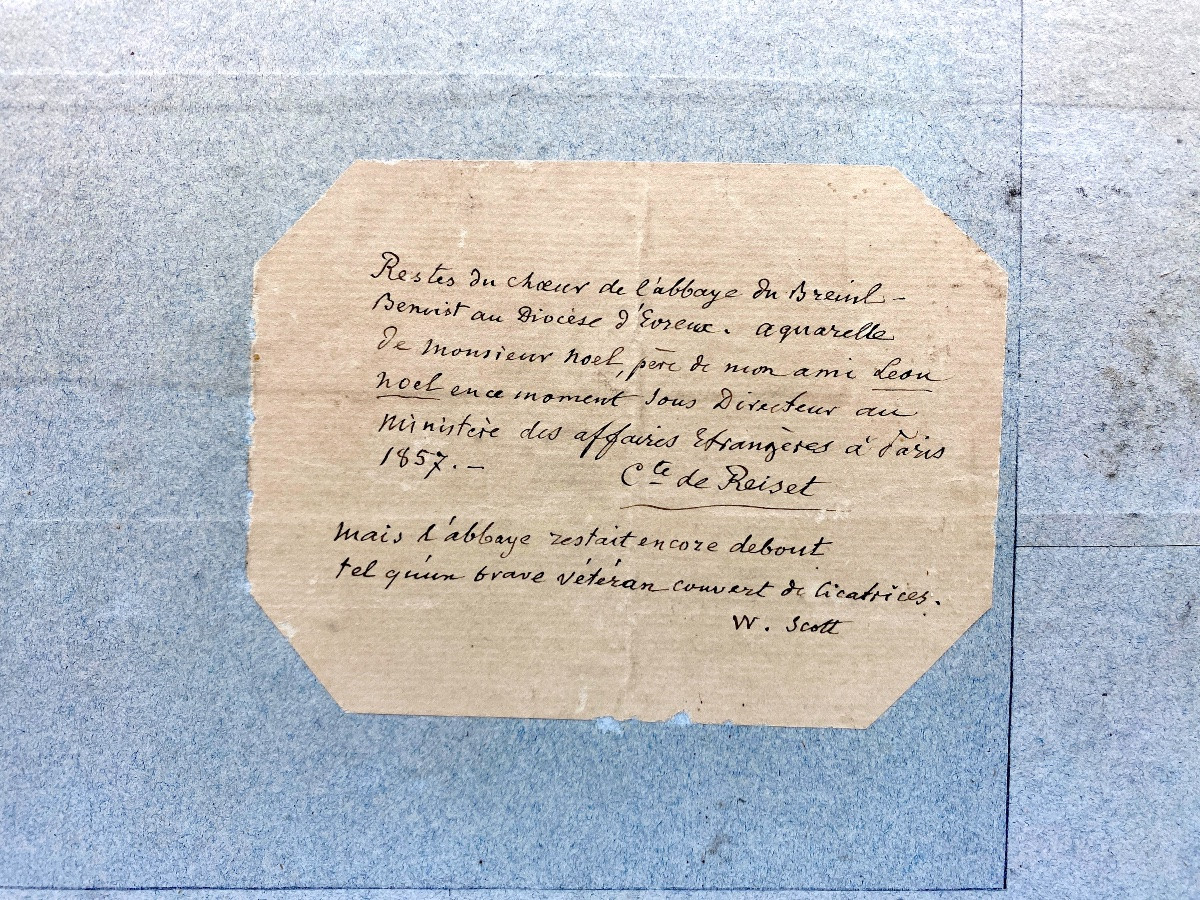 Restes du chœur de l'abbaye du Breuil-
Benoist au Diocèse d'Evreux. aquarelle
de monsieur noel, père de mon ami Léon
noel en ce moment Sous Directeur au
Ministère des affaires Etrangères à Paris
1857. —
Cte de Reiset
Mais l'abbaye restait encore debout
tel qu'un brave vétéran couvert de Cicatrices.
W. Scott